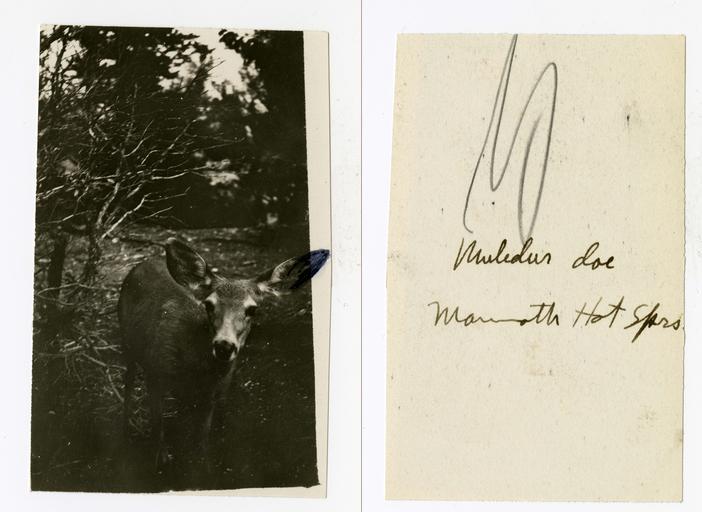 Muledeer doe
Mammoth Hot Sprs.